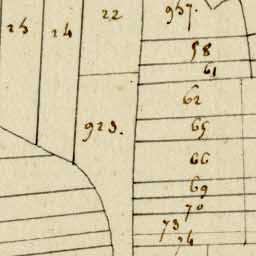 23 24 22 957.
58
61
62
923. 65
66
69
70
73
74